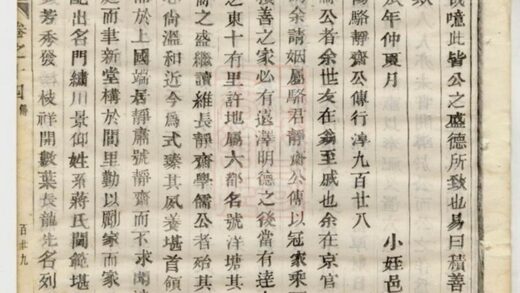 哉噫此皆公之盛德所致也易曰積善
辰年仲夏月 小姪邑
陽駱靜齋公傳行淳九百廿八
公者余世友在翁至戚也余在京官
余請姻屬駱君靜齋公傳以冠家乘
積善之家必有遠澤明德之後當有達
之東十有里許地屬六都名號洋塘其
喬之盛繼讀維長靜齋學儒公者殆其
尙溫和近今爲式臻其夙養堪首領
需於上國端居靜肅號靜齋而不求聞
庭而聿新堂構於閭里勤以勵家而家
配出名門繡川景仰姓系蔣氏閫範堪
芳秀發 枝祥開數葉長龍先名列
卷之一 傳 百廿九